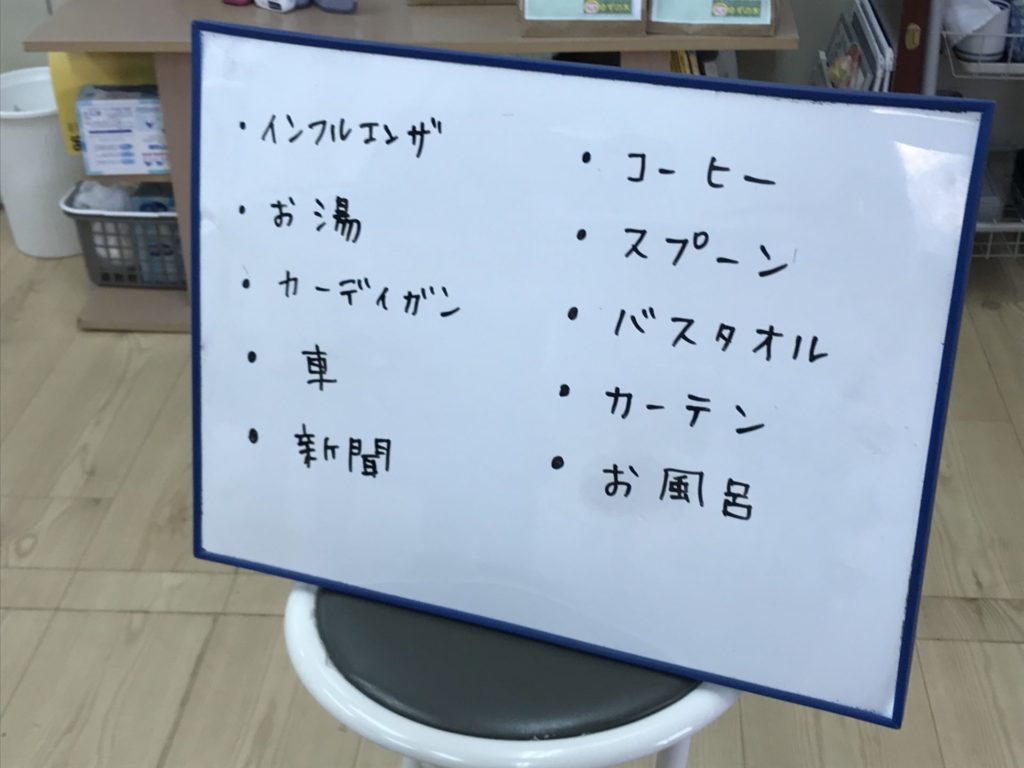 ・インフルエンザ
・お湯
・カーディガン
・車
・新聞
・コーヒー
・スプーン
・バスタオル
・カーテン
・お風呂